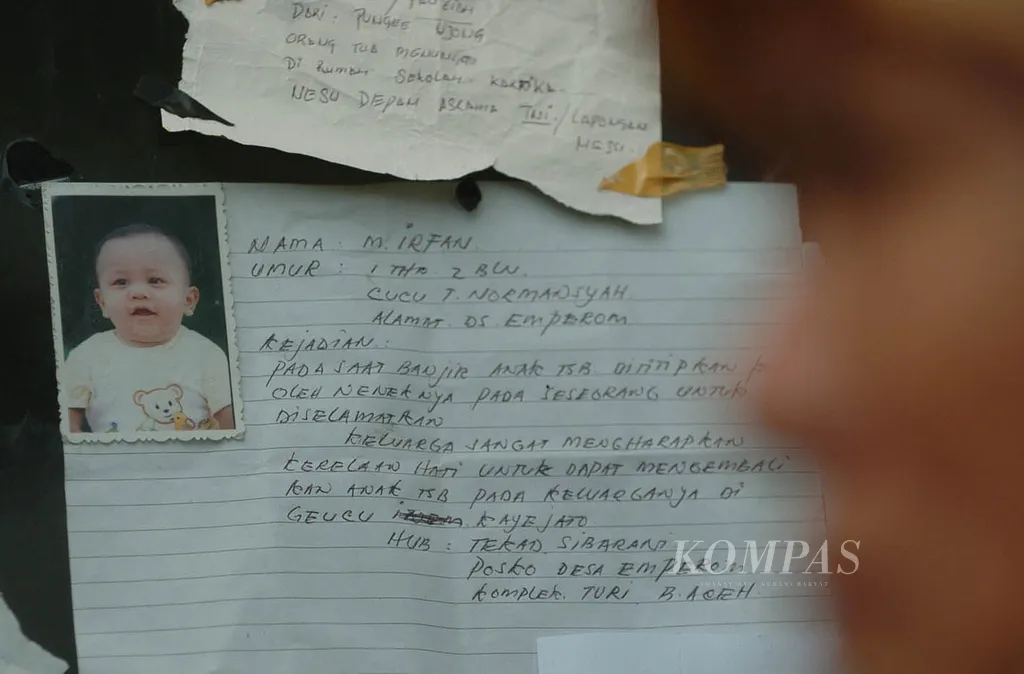 DARI : PUNGEE UJONG
ORANG TUA MENUNGGU
DI RUMAH SEKOLAH KARTIKA
NESU DEPAN ASRAMA TNI / LAPANGAN
NESU.
NAMA : M. IRFAN
UMUR : 1 THN 2 BLN.
CUCU T. NORMANSYAH
ALAMAT DS EMPEROM
KEJADIAN :
PADA SAAT BANJIR ANAK TSB DITITIPKAN
OLEH NENEKNYA PADA SESEORANG UNTUK
DISELAMATKAN
KELUARGA SANGAT MENGHARAPKAN
KERELAAN HATI UNTUK DAPAT MENGEMBALI
KAN ANAK TSB PADA KELUARGANYA DI
GEUCU KAYEJATO
HUB : TEKAD SIBARANI
POSKO DESA EMPEROM
KOMPLEK TURI B. ACEH
KOMPAS
AMANAT HATI NURANI RAKYAT